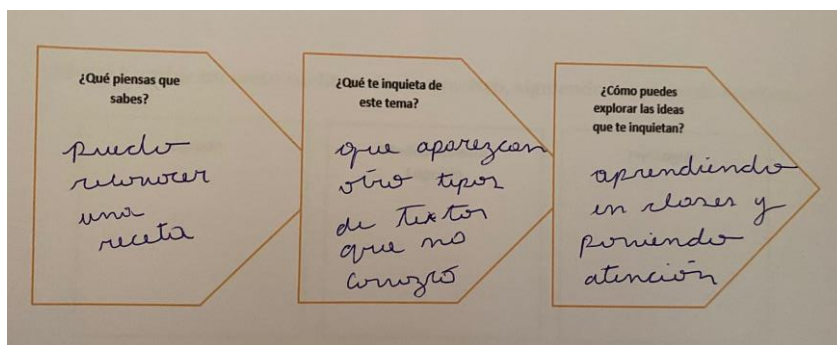 ¿Qué piensas que
sabes?
puedo
reconocer
una
receta
¿Qué te inquieta de
este tema?
que aparezcan
otro tipos
de textos
que no
conozco
¿Cómo puedes
explorar las ideas
que te inquietan?
aprendiendo
en clases y
poniendo
atención